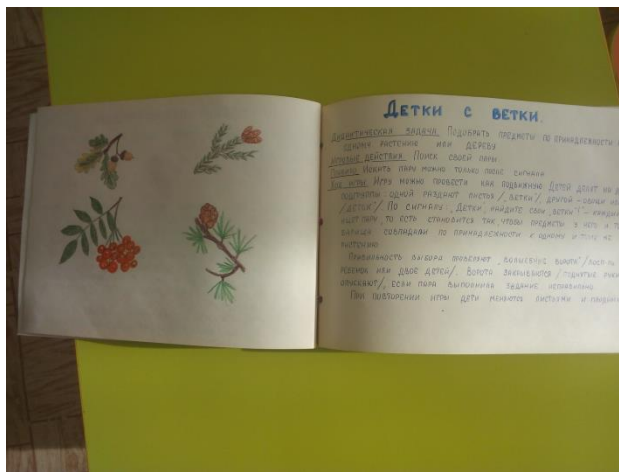 Детки с ветки.
Дидактическая задача. Подобрать предметы по принадлежности к
одному растению или дереву
Игровые действия. Поиск своей пары.
Правило. Искать пару можно только после сигнала
Ход игры. Игру можно провести как подвижную. Детей делят на две
подгруппы: одной раздают листья /„ветки"/, другой –
/„детки"/. По сигналу: „Детки, найдите свои ветки"! –
ищет пару, то есть становится так, чтобы предметы у него и
совпадали по принадлежности к одному и тому же
растению.
Правильность выбора проверяют „волшебные ворота" /
ребёнок или двое детей/. Ворота закрываются /поднятые руки
опускают/, если пара выполнила задание неправильно.
При повторении игры дети меняются листьями и